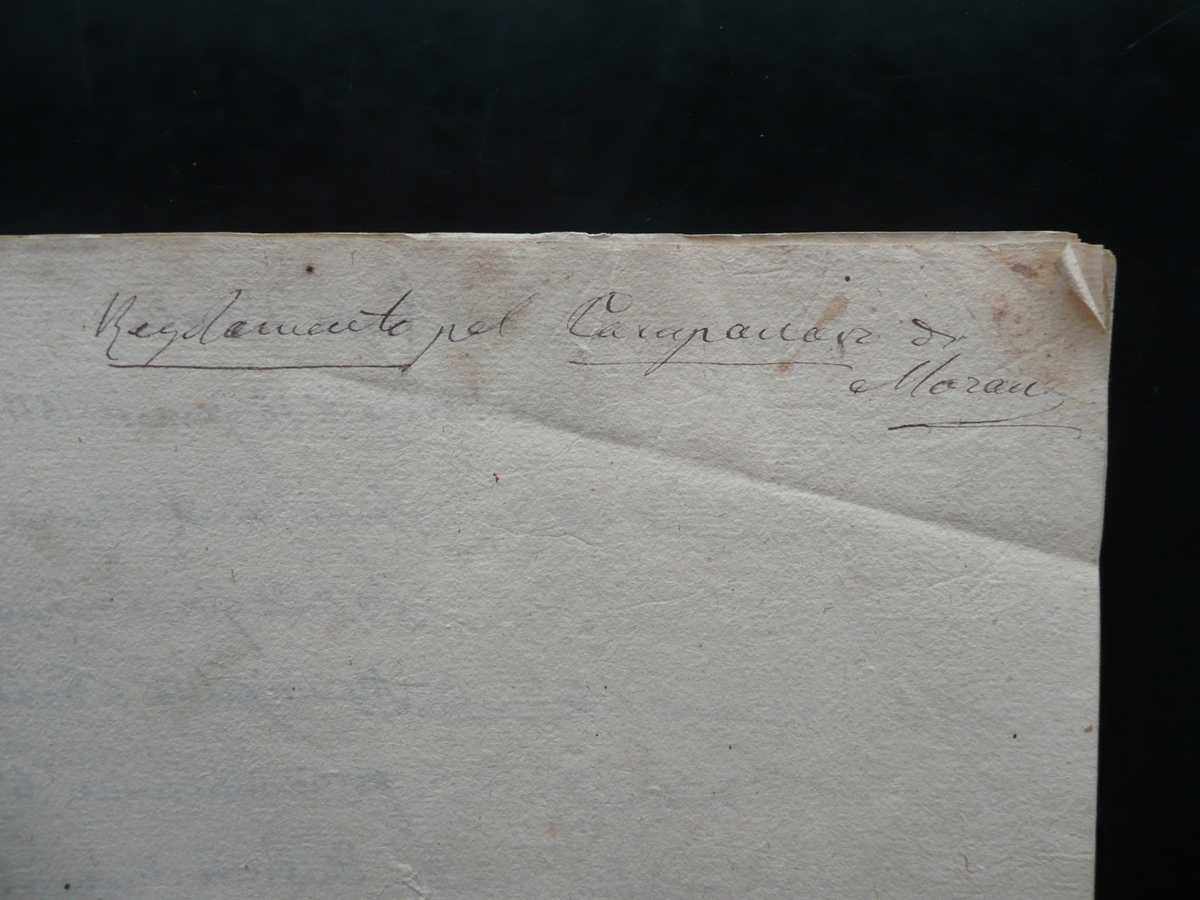 Regolamento pel Campanaro di
Moran